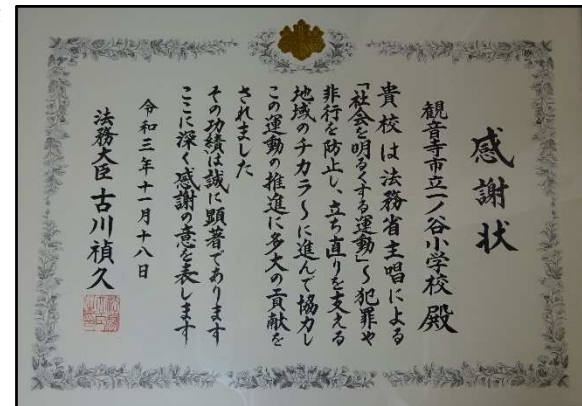 感謝状
観音寺市立一ノ谷小学校 殿
貴校は法務省主唱による
「社会を明るくする運動」～犯罪や
非行を防止し、立ち直りを支える
地域のチカラ～に進んで協力し
この運動の推進に多大の貢献を
されました
その功績は誠に顕著であります
ここに深く感謝の意を表します
令和三年十一月十八日
法務大臣 古川禎久